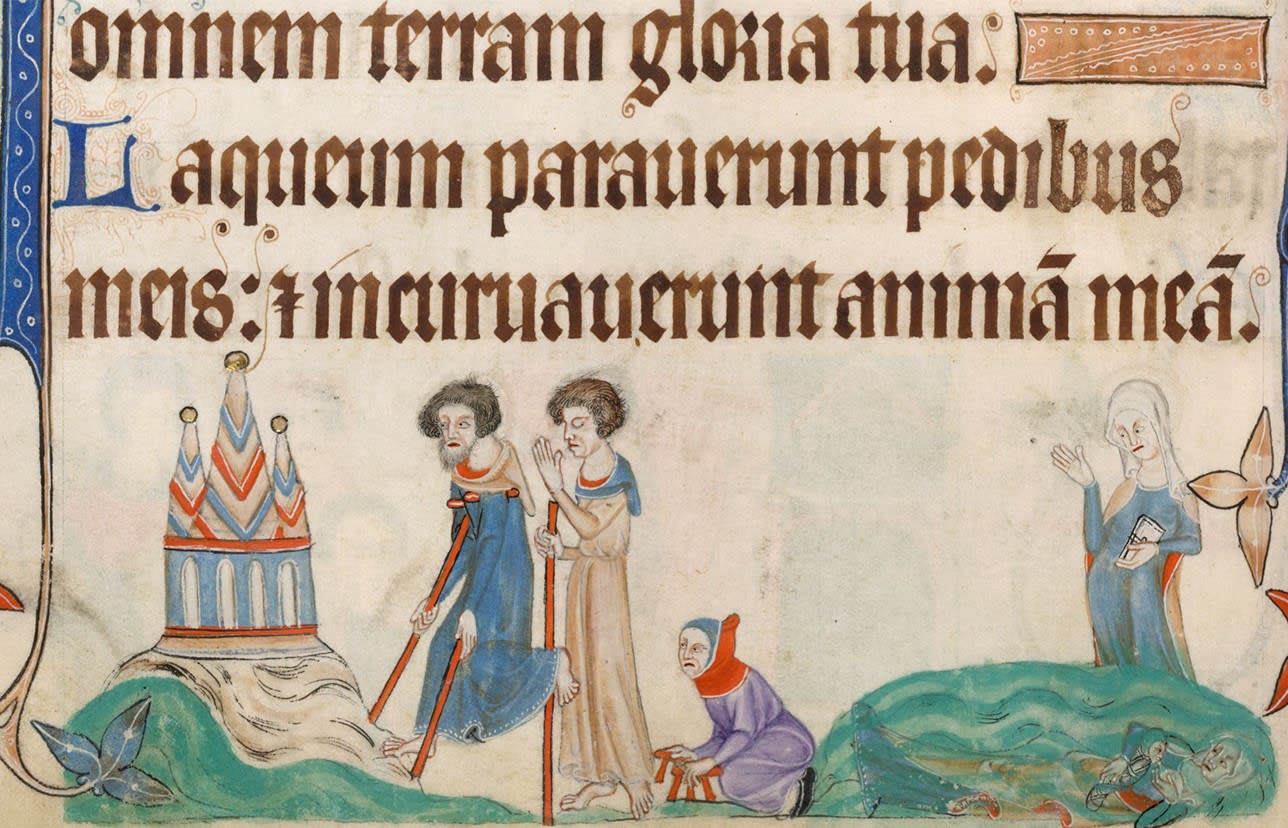 omnem terram gloria tua.
Laqueum parauerunt pedibus
meis: ⁊ incuruauerunt animā meā.